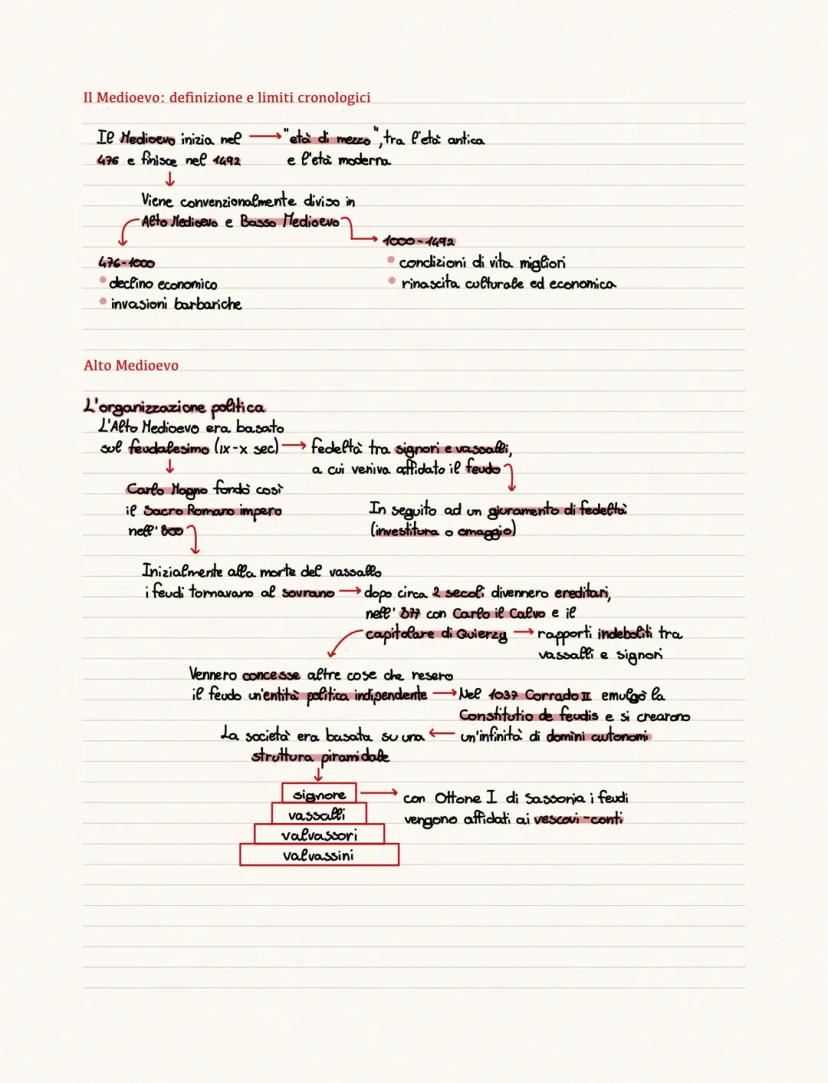 Il Medioevo: definizione e limiti cronologici
Il Medioevo inizia nel → "età di mezzo", tra l'età antica
476 e finisce nel 1492 e l'età moderna
Viene convenzionalmente diviso in
Alto Medioevo e Basso Medioevo
1000-1492
476-1000
• condizioni di vita migliori
• declino economico
• rinascita culturale ed economica
• invasioni barbariche
Alto Medioevo
L'organizzazione politica
L'Alto Medioevo era basato
sul feudalesimo (IX-X sec) → fedeltà tra signori e vassalli,
a cui veniva affidato il feudo
Carlo Magno fondò così
il Sacro Romano impero
nell' 800
In seguito ad un giuramento di fedeltà
(investitura o omaggio)
Inizialmente alla morte del vassallo
i feudi tornavano al sovrano → dopo circa 2 secoli divennero ereditari,
nell' 877 con Carlo il Calvo e il
capitolare di Quierzy → rapporti indeboliti tra
vassalli e signori
Vennero concesse altre cose che resero
il feudo un'entità politica indipendente → Nel 1037 Corrado II emulgò la
Constitutio de feudis e si crearono
un'infinità di domini autonomi
La società era basata su una ←
struttura piramidale
signore → con Ottone I di Sassonia i feudi
vengono affidati ai vescovi-conti
vassalli
valvassori
valvassini